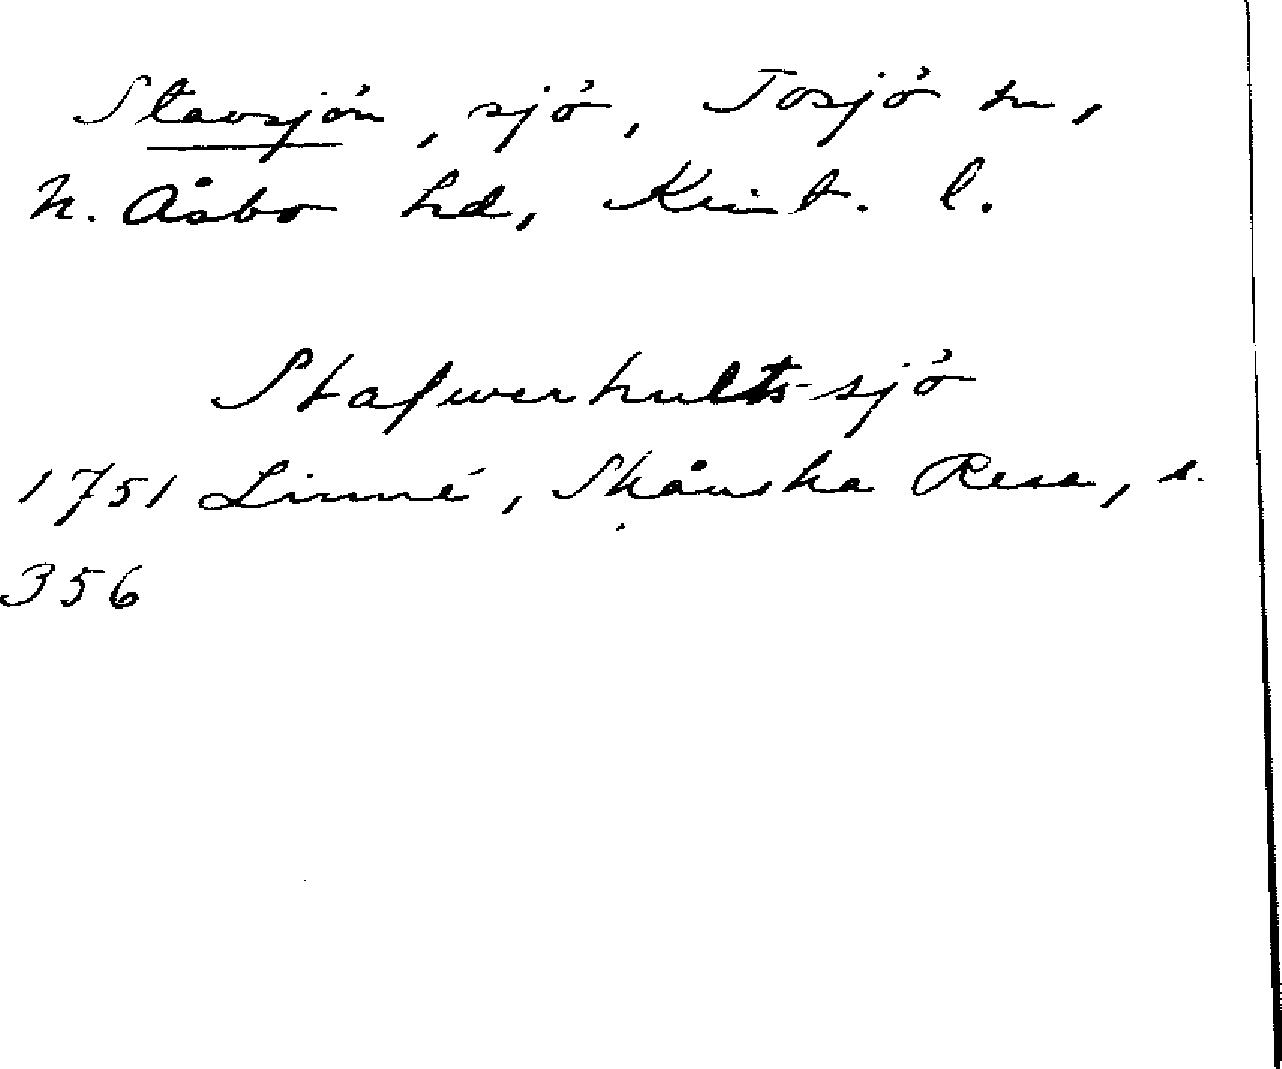 Stavsjön, sjö, Tosjö sn,
N. Åsbo hd, Krist. l.
Stafwerhults-sjö
1751 Linné, Skånska Resa, s.
356